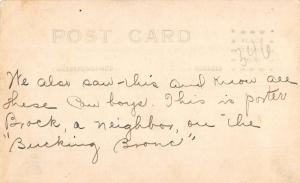 POST CARD
346
We also saw this and know all
these Cow boys. This is porter
Brock, a neighbor, on "the
"Bucking Bronc"